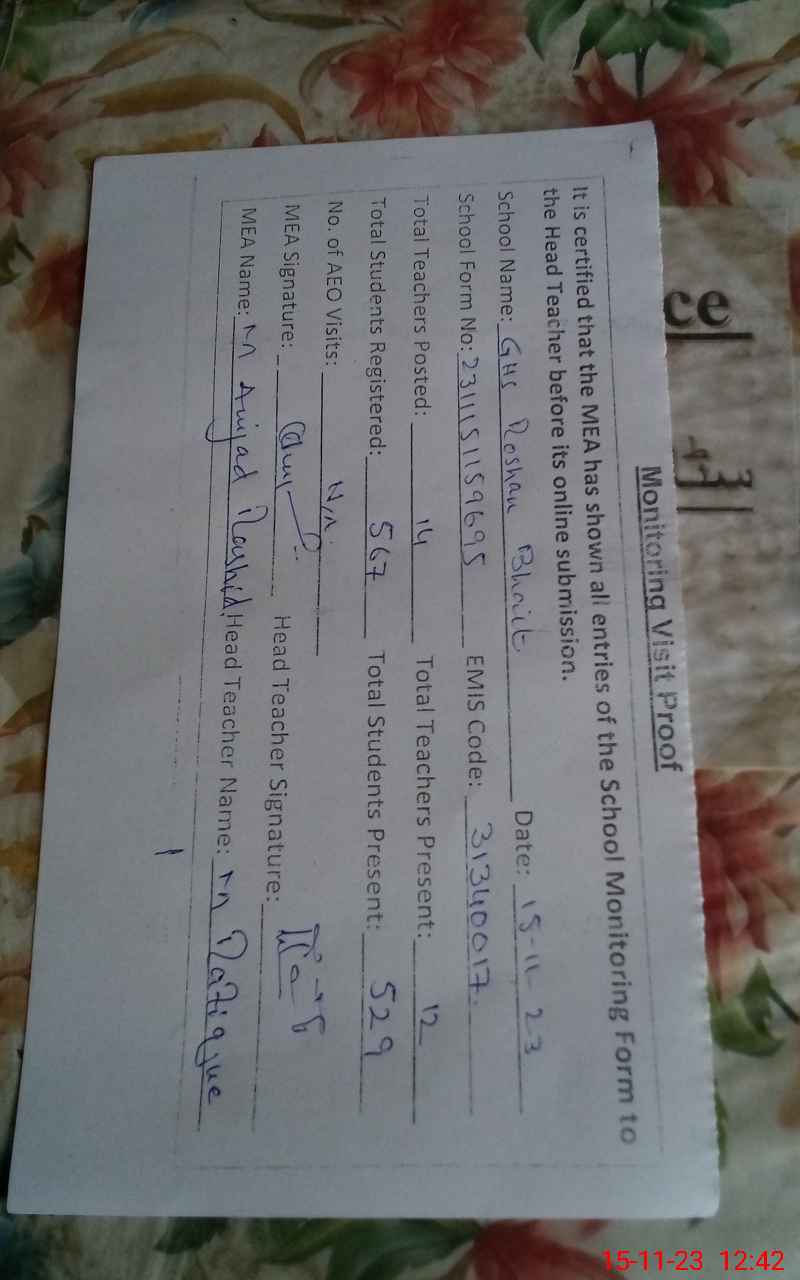 Monitoring Visit Proof
It is certified that the MEA has shown all entries of the School Monitoring Form to
the Head Teacher before its online submission.
School Name: GHS Roshan Bhait Date: 15-11-23
School Form No: 231115159695 EMIS Code: 31340017
Total Teachers Posted: 14 Total Teachers Present: 12
Total Students Registered: 567 Total Students Present: 529
No. of AEO Visits: N/A
MEA Signature: Head Teacher Signature:
MEA Name: M Amjad Rashid Head Teacher Name: M Rafique
15-11-23 12:42